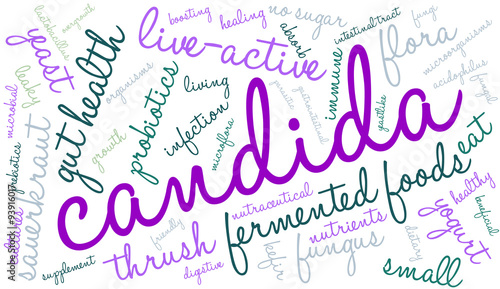 lactobacillus
overgrowth
boosting
healing
no sugar
intestinal tract
fungi
yeast
live-active
absorb
immune
flora
microorganisms
acidophilus
fungi
microbial
leaky
gut health
organisms
probiotics
living
infection
microflora
parasitic
gastrointestinal
yeastlike
growth
candida
sauerkraut
prebiotics
cultures
supplement
thrush
friendly
digestive
nutraceutical
kefir
fermented foods
nutrients
fungus
eat
healthy
beneficial
yogurt
dietary
small
Adobe Stock | #93916017